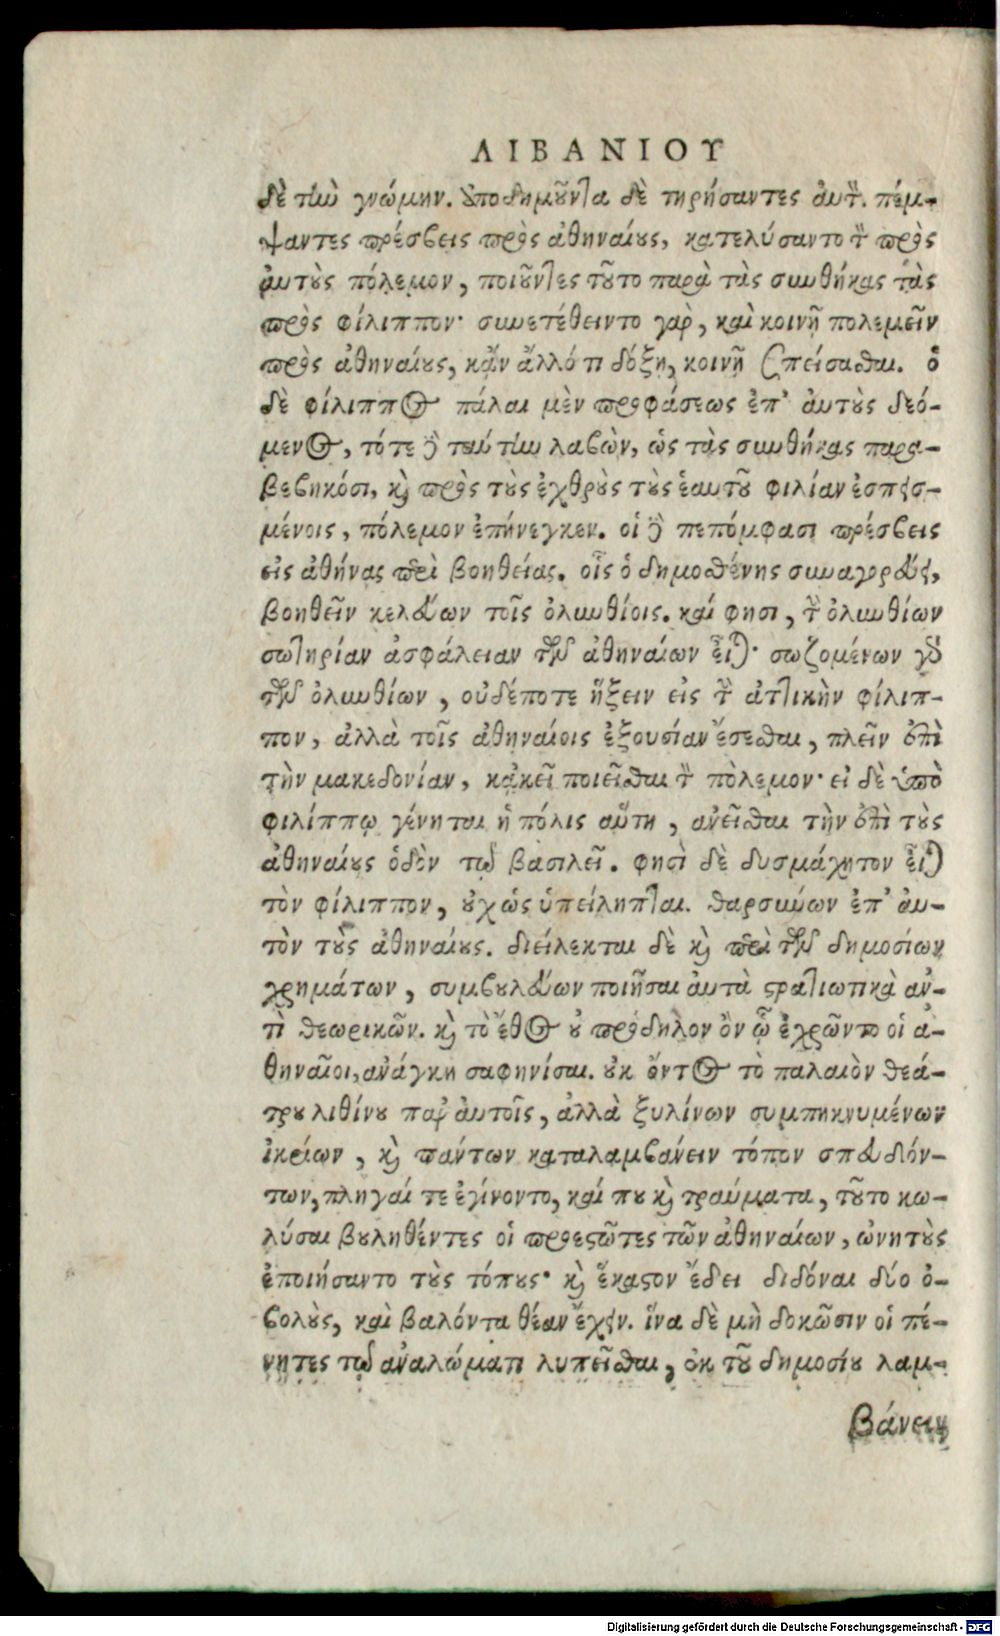 ΛΙΒΑΝΙΟΥ
δὲ τὴν γνώμην. ἀποδημοῦντα δὲ τηρήσαντες αὐτὸν. πέμ-
ψαντες πρέσβεις πρὸς ἀθηναίους, κατελύσαντο τὸν πρὸς
αὐτοὺς πόλεμον, ποιοῦντες τοῦτο παρὰ τὰς συνθήκας τὰς
πρὸς φίλιππον· συνετέθειντο γὰρ, καὶ κοινῇ πολεμεῖν
πρὸς ἀθηναίους, κἂν ἄλλό τι δόξῃ, κοινῇ σπείσασθαι. ὁ
δὲ φίλιππος πάλαι μὲν προφάσεως ἐπ’ αὐτοὺς δεό-
μενος, τότε δὲ ταύτην λαβὼν, ὡς τὰς συνθήκας παρα-
βεβηκόσι, καὶ πρὸς τοὺς ἐχθροὺς τοὺς ἑαυτοῦ φιλίαν ἐσπεισ-
μένοις, πόλεμον ἐπήνεγκεν. οἱ δὲ πεπόμφασι πρέσβεις
εἰς ἀθήνας περὶ βοηθείας. οἷς ὁ δημοσθένης συναγορεύει,
βοηθεῖν κελεύων τοῖς ὀλυνθίοις. καί φησι, τὴν ὀλυνθίων
σωτηρίαν ἀσφάλειαν τῶν ἀθηναίων εἶναι· σωζομένων γὰρ
τῶν ὀλυνθίων, οὐδέποτε ἥξειν εἰς τὴν ἀττικὴν φίλιπ-
πον, ἀλλὰ τοῖς ἀθηναίοις ἐξουσίαν ἔσεσθαι, πλεῖν ἐπὶ
τὴν μακεδονίαν, κἀκεῖ ποιεῖσθαι τὸν πόλεμον· εἰ δὲ ὑπὸ
φιλίππῳ γένηται ἡ πόλις αὕτη, ἀνεῖσθαι τὴν ἐπὶ τοὺς
ἀθηναίους ὁδὸν τῷ βασιλεῖ. φησὶ δὲ δυσμάχητον εἶναι
τὸν φίλιππον, οὐχ ὡς ὑπείληπται. θαρσύνων ἐπ’ αὐ-
τὸν τοὺς ἀθηναίους. διείλεκται δὲ καὶ περὶ τῶν δημοσίων
χρημάτων, συμβουλεύων ποιῆσαι αὐτὰ στρατιωτικὰ ἀν-
τὶ θεωρικῶν. καὶ τὸ ἔθος οὐ πρόδηλον ὂν ᾧ ἐχρῶντο οἱ ἀ-
θηναῖοι, ἀνάγκη σαφηνίσαι. οὐκ ὄντος τὸ παλαιὸν θεά-
τρου λιθίνου παρ’ αὐτοῖς, ἀλλὰ ξυλίνων συμπηκνυμένων
ἰκρίων, καὶ πάντων καταλαμβάνειν τόπον σπευδόν-
των, πληγαί τε ἐγίνοντο, καί που καὶ τραύματα, τοῦτο κω-
λύσαι βουληθέντες οἱ προεστῶτες τῶν ἀθηναίων, ὠνητοὺς
ἐποιήσαντο τοὺς τόπους· καὶ ἕκαστον ἔδει διδόναι δύο ὀ-
βολοὺς, καὶ βαλόντα θέαν ἔχειν. ἵνα δὲ μὴ δοκῶσιν οἱ πέ-
νητες τῷ ἀναλώματι λυπεῖσθαι, ἐκ τοῦ δημοσίου λαμ-
βάνειν
Digitalisierung gefördert durch die Deutsche Forschungsgemeinschaft - DFG